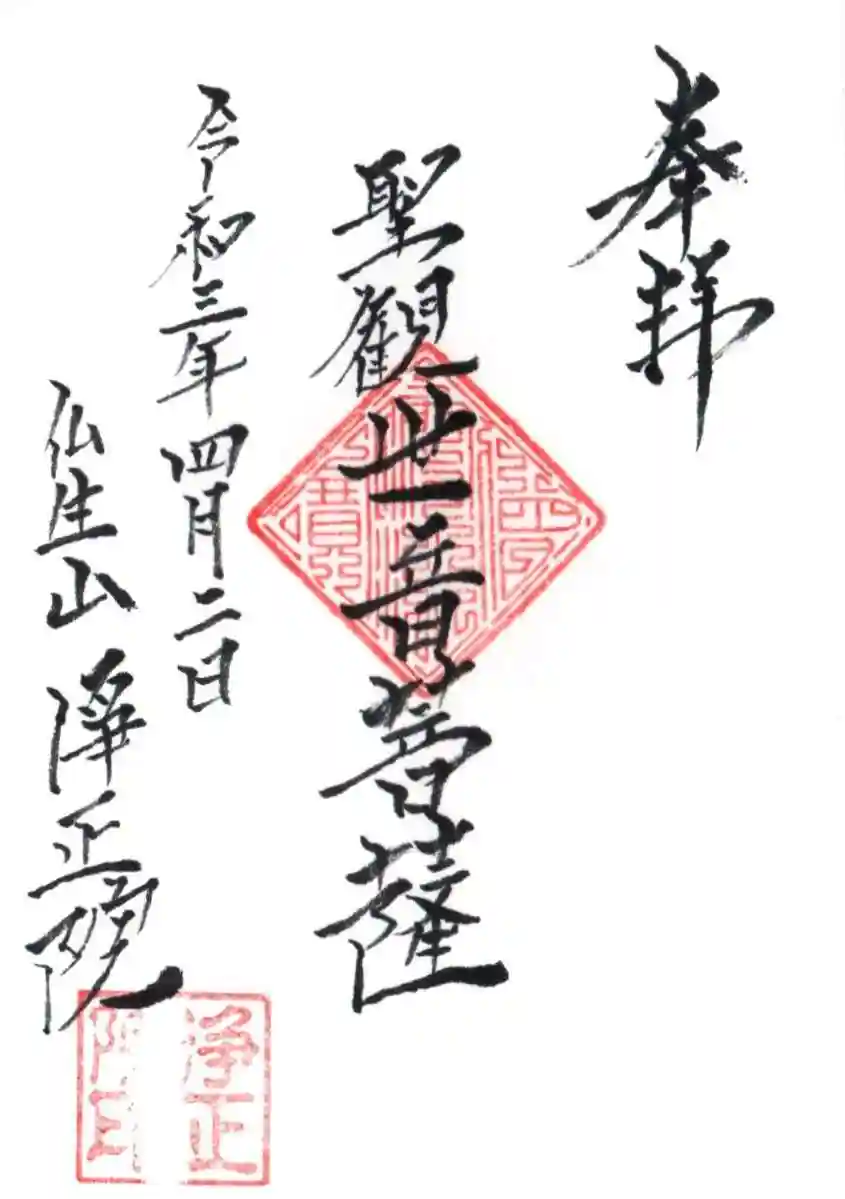 奉拝
聖觀世音菩薩
令和三年四月二日
仏生山 浄正院
浄正
院印